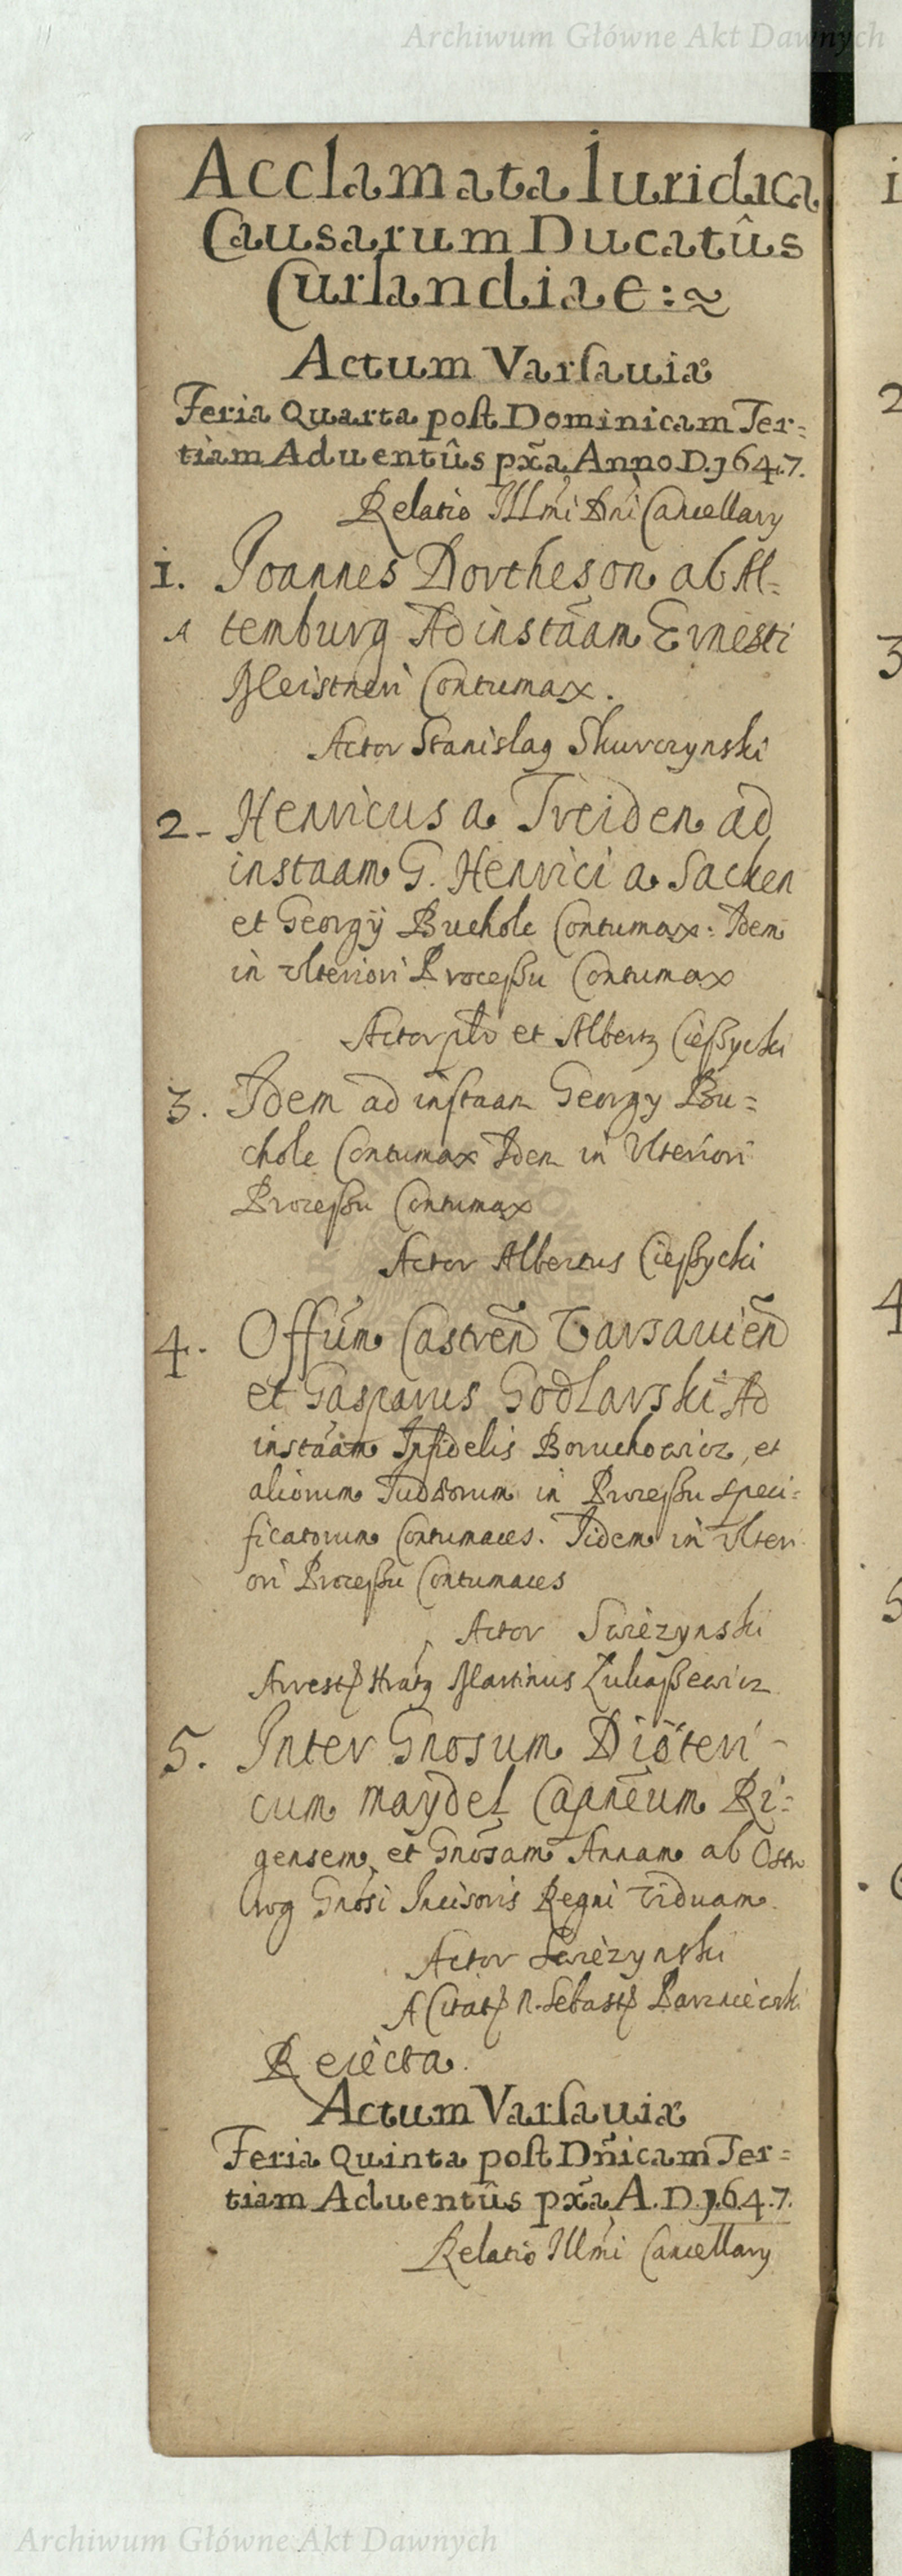 Archiwum Główne Akt Dawnych
Acclamata Iuridica
Causarum Ducatûs
Curlandiae:~
Actum Varsauiæ
Feria Quarta post Dominicam Ter=
tiam Aduentûs px̃a Anno D. 1647.
Relatio Illmi Dni Cancellary
1. Joannes Dortheson ab Al=
temburg Ad instãam Ernesti
Meistneri Contumax.
Actor Stanislaq Skurczynski
2. Henricus a Treiden ad
instaam G. Henrici a Sacken
et Georgÿ Buchole Contumax. Idem
in Ulteriori Processu Contumax
Actor et Albertq Ciessycki
3. Idem ad instaam Georgy Bu=
chole Contumax Idem in Ulteriori
Processu Contumax
Actor Albertus Ciessycki
4. Offũm Castren̄ Varsauien̄
et Gasparus Godlavski Ad
instãam Infidelis Boruchowicz, et
aliorum Judæorum in Processu speci=
ficatorum Contumaces. Iidem in Ulteri
ori Processu Contumaces
Actor Swiezynski
Martinus Lukassewicz
5. Inter Gnosum Dioteri-
cum maÿdel Capneum Ri=
gensem et Gnõsam Annam ab
Gnõsi Incisoris Regni Viduam.
Actor Swiezynski
A Citatq N. Sebastq
Reiecta.
Actum Varsauiæ
Feria Quinta post Dñicam Ter=
tiam Aduentûs px̃a A. D. 1647.
Relatio Illmi Cancellary
Archiwum Główne Akt Dawnych